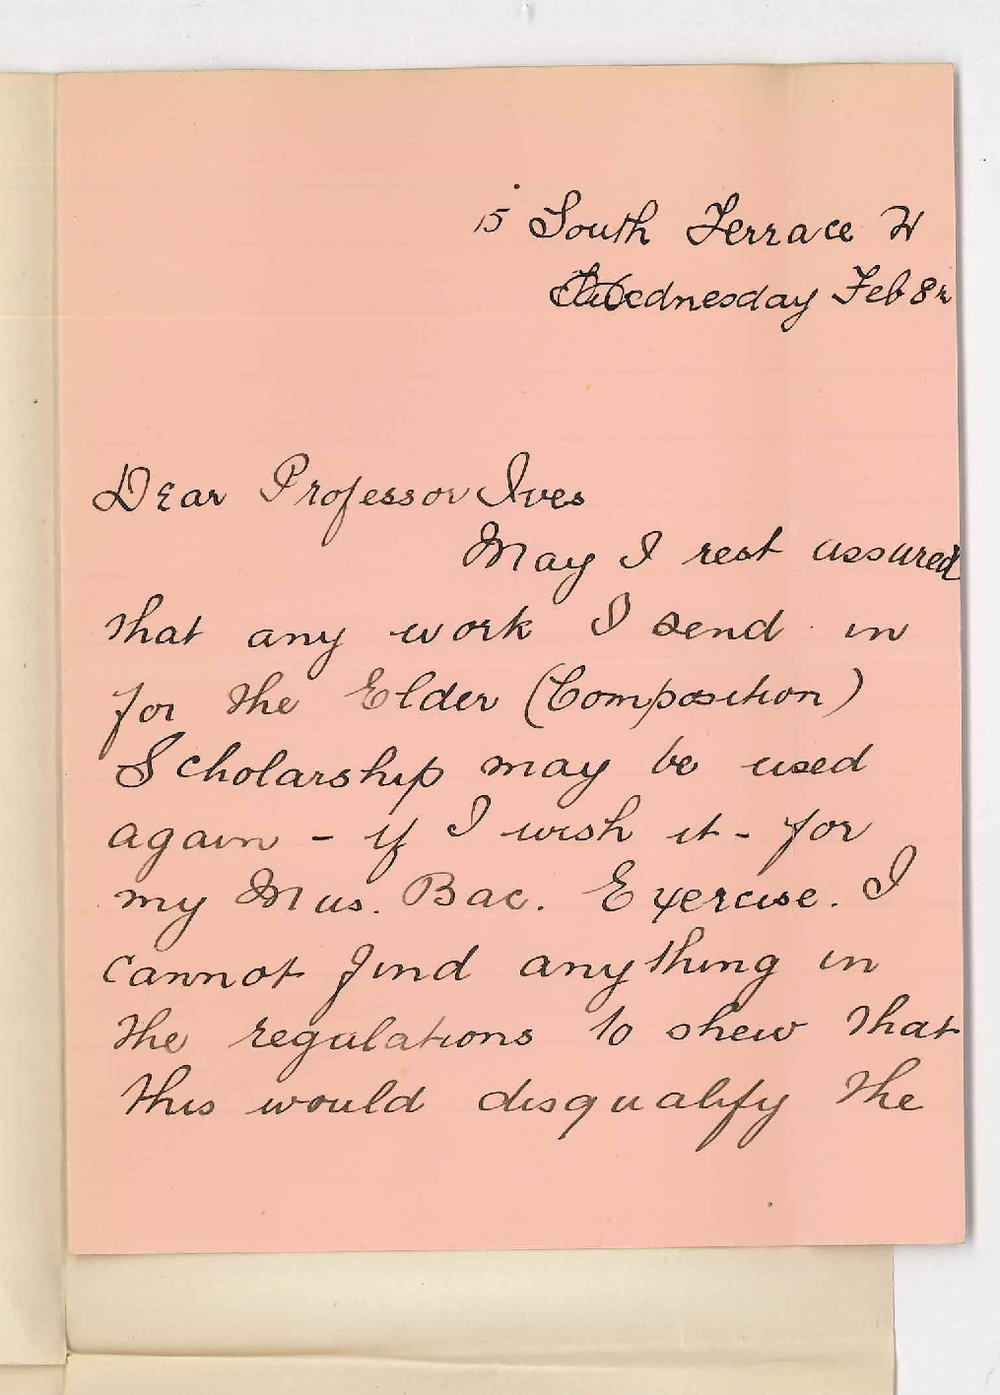 15 South Terrace W
Wednesday Feb 8
Dear Professor Ives
May I rest assured
that any work I send in
for the Elder (Composition)
Scholarship may be used
again - if I wish it - for
my Mus. Bac. Exercise. I
cannot find anything in
the regulations to shew that
this would disqualify the